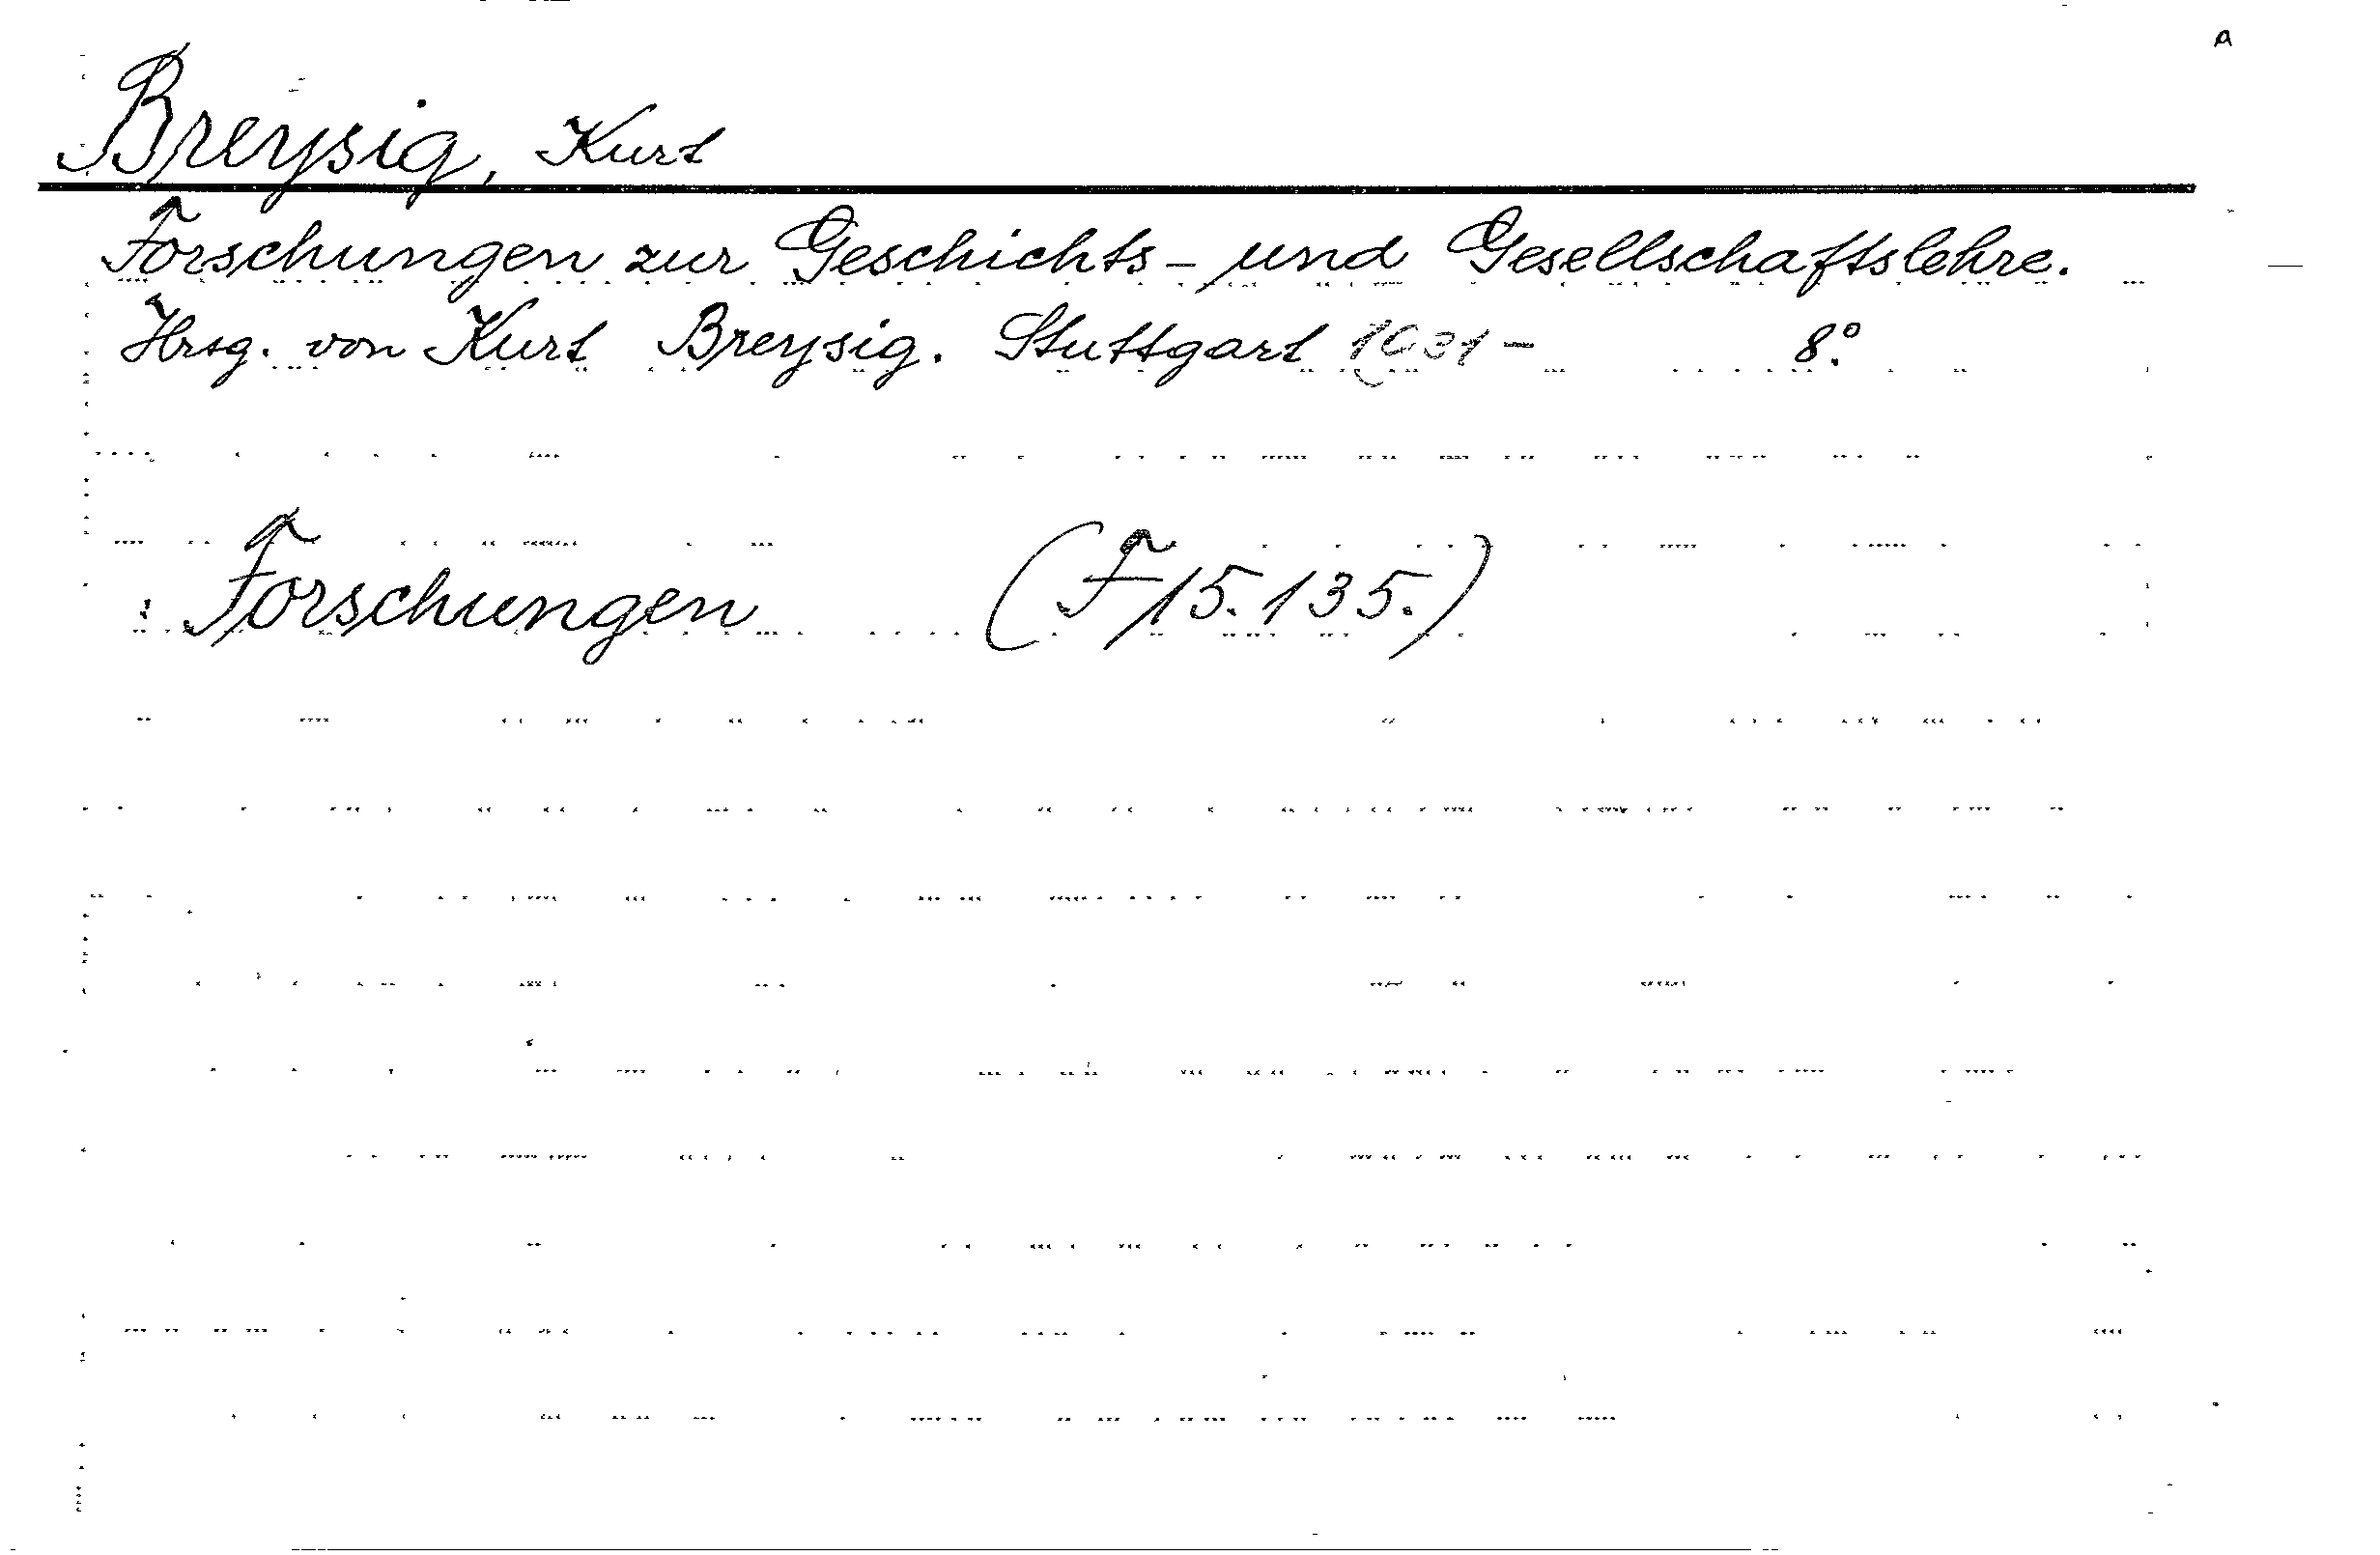 a
Breysig, Kurt
Forschungen zur Geschichts- und Gesellschaftslehre.
Hrsg. von Kurt Breysig. Stuttgart 1931- 8°.
: Forschungen (F 15.135.)